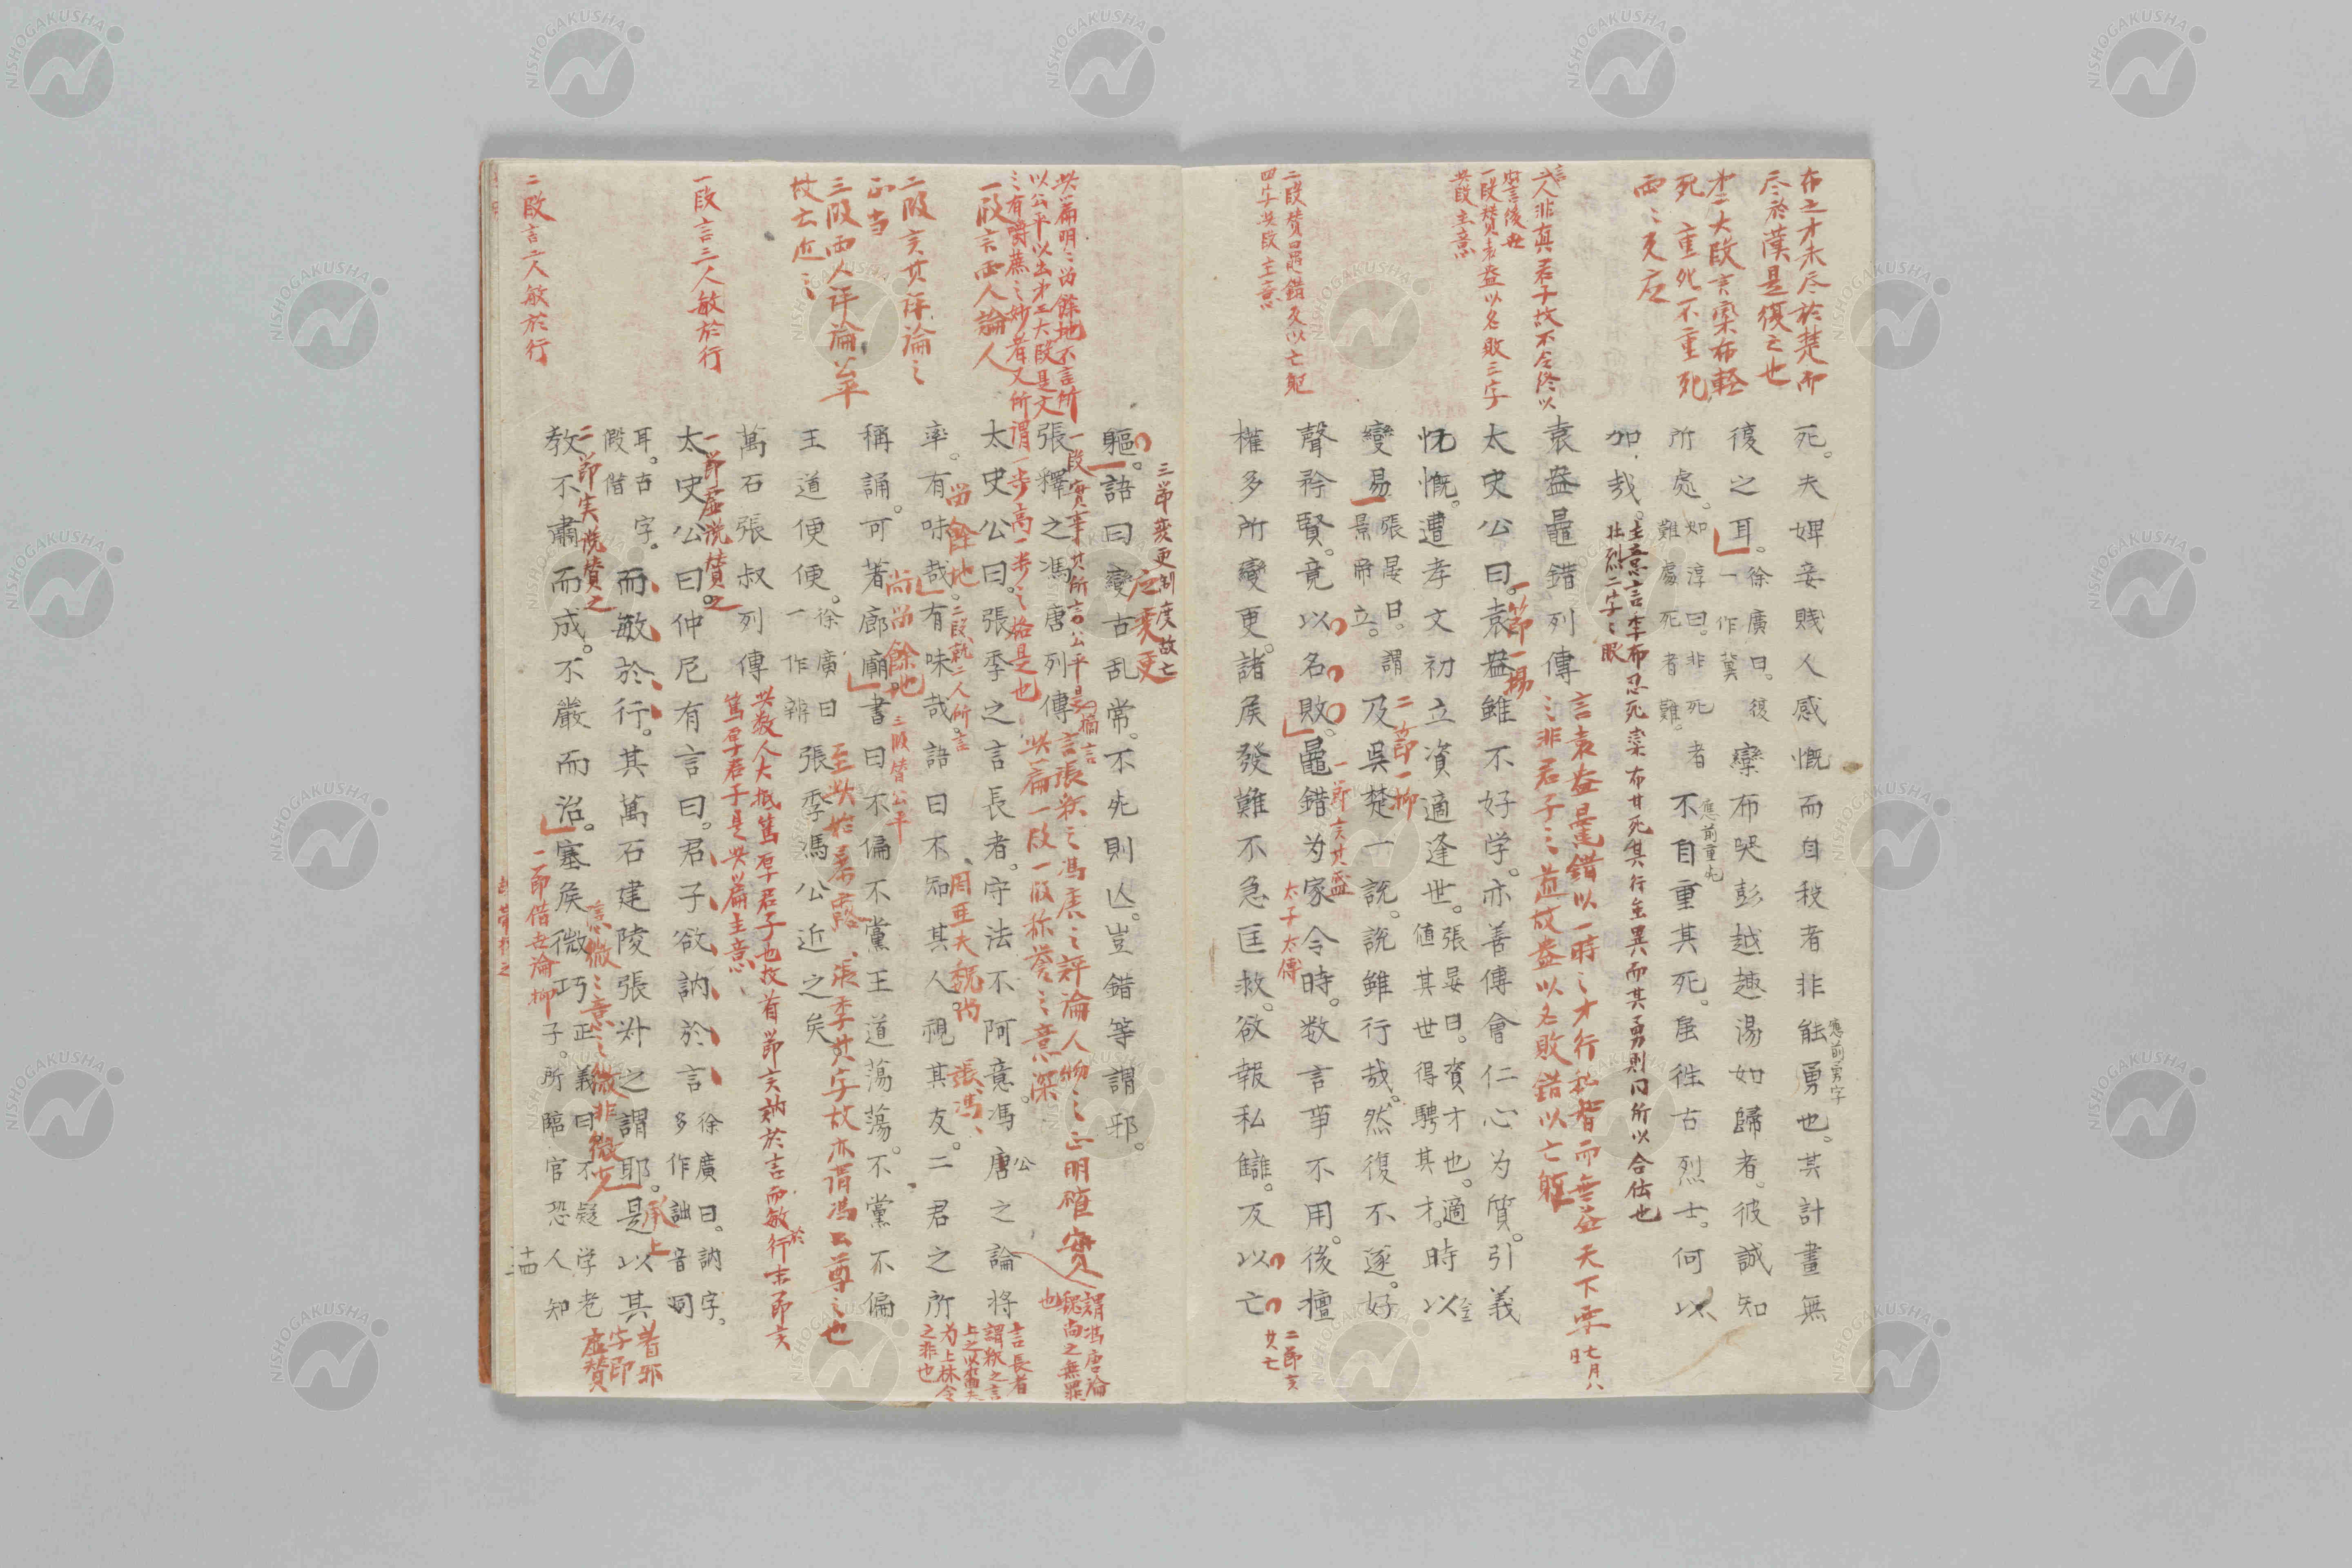 布之才未尽於楚而
尽於漢是復之也
才二大段言欒布軽
死 重死不重死
両〻叐应
言
二人非真君子故不令終以
一段賛袁盎以名敗三字
其段主意
二段賛鼂錯反以亡躯
四字其段主意
死。夫婢妾賤人感慨而自殺者非能勇也。其計畫無
應前勇字
復之耳。徐廣曰。復
一作冀
欒布哭彭越趣湯如歸者。彼誠知
所處。如淳曰。非死者
難處死者難。
不自重其死。虽往古烈士。何以
應前重死
加哉。
主意言季布忍死欒布甘死其行虽異而其勇則同所以合伝也
壮烈二字〻眼
袁盎鼂錯列傳
言袁盎鼂錯以一時〻才行私智而無益天下
〻非君子〻道故盎以名敗錯以亡躯
七月八日
太史公曰。袁盎雖不好学。亦善傳會仁心为質。引義
一節一揚
忼慨。遭孝文初立資適逢世。張晏曰。資才也。適
值其世得騁其才。
時以
變易
張晏曰。謂
景帝立。
及吳楚一說。說雖行哉。然復不遂。好
二節一抑
聲矜賢。竟以名敗。鼂錯为家令時。数言事不用。後擅
一節言其盛
太子太傅
權多所變更。諸侯發難不急匡救。欲報私讎。反以亡
二節言
其亡
此篇明〻留餘地不言所
以公平以出才五大段是文
〻有蔗〻妙者又所
謂一步高一步〻格是也
一段言両人論人
二段言其評論〻
正当
三段両人評論公平
故云近〻
一段言三人敏於行
二段言二人敏於行
軀。語曰變古乱常。不死則亾。豈錯等謂邪。
三節変更制度故亡
应変更
張釋之馮唐列傳
一段實事其所言公平是摘言
言張釈之馮唐之評論人物〻正明確實
此篇一段一段称誉〻意深
謂馮唐論
魏尚之無罪
也
太史公曰。張季之言長者。守法不阿意。馮唐之論將
公
言長者
謂釈之言
上之以嗇夫
为上林令
之非也
率。有味哉。有味哉。語曰不知其人視其友。二君之所
留餘地
二段就二人所言
周亜夫魏尚
張、馮、
稱誦。可著廊廟。書曰不偏不黨王道蕩蕩。不黨不偏
尚留餘地
三段賛公平
王道便便。徐廣曰
一作辨
張季馮公近之矣
至此始希露、張季其字故亦謂馮公尊〻也
萬石張叔列傳
此数人大抵篤厚君子也故首節言訥於言而敏於行末節言
篤厚君子是此篇主意
太史公曰。仲尼有言曰。君子欲訥於言
徐廣曰。訥字。
多作詘音同
一節虚説賛之
耳。古字。
假借
而敏於行。其萬石建陵張叔之謂耶。是以其
承上
者邪
字即
虚賛
教不肅而成。不嚴而治。塞侯微巧
正義曰不疑学老
子。所臨官恐人知
二節実説賛之
二節借世論抑
言微〻意〻微非微少
三十四